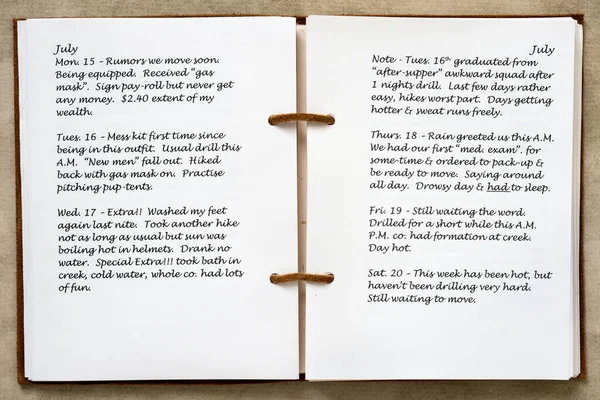 July
Mon. 15 – Rumors we move soon.
Being equipped. Received "gas
mask". Sign pay-roll but never get
any money. $2.40 extent of my
wealth.
Tues. 16 – Mess kit first time since
being in this outfit. Usual drill this
A.M. "New men" fall out. Hiked
back with gas mask on. Practise
pitching pup-tents.
Wed. 17 – Extra!! Washed my feet
again last nite. Took another hike
not as long as usual but sun was
boiling hot in helmets. Drank no
water. Special Extra!!! took bath in
creek, cold water, whole co. had lots
of fun.
July
Note - Tues. 16th graduated from
"after-supper" awkward squad after
1 nights drill. Last few days rather
easy, hikes worst part. Days getting
hotter & sweat runs freely.
Thurs. 18 – Rain greeted us this A.M.
We had our first "med. exam". for
some-time & ordered to pack-up &
be ready to move. Saying around
all day. Drowsy day & had to sleep.
Fri. 19 – Still waiting the word.
Drilled for a short while this A.M.
P.M. co. had formation at creek.
Day hot.
Sat. 20 – This week has been hot, but
haven't been drilling very hard.
Still waiting to move.